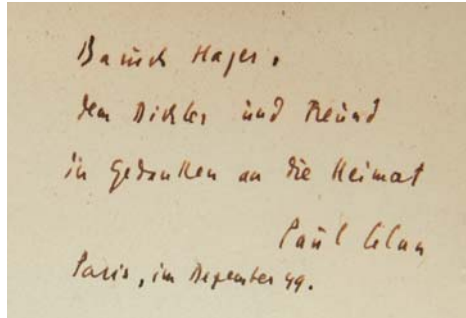 Baruch Hager,
dem Dichter und Freund
in Gedanken an die Heimat
Paul Celan
Paris, im Dezember 49.